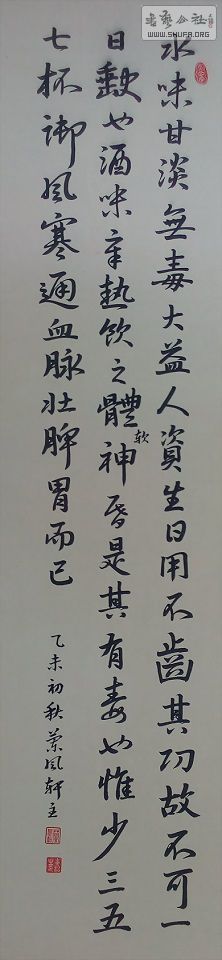 書藝公社
WWW.SHUFA.ORG
水味甘淡無毒大益人資生日用不齒其功故不可一
日缺也酒味辛熱飲之體軟神昏是其有毒也惟少三五
七杯御風寒通血脉壯脾胃而已
乙未初秋蘭風軒主